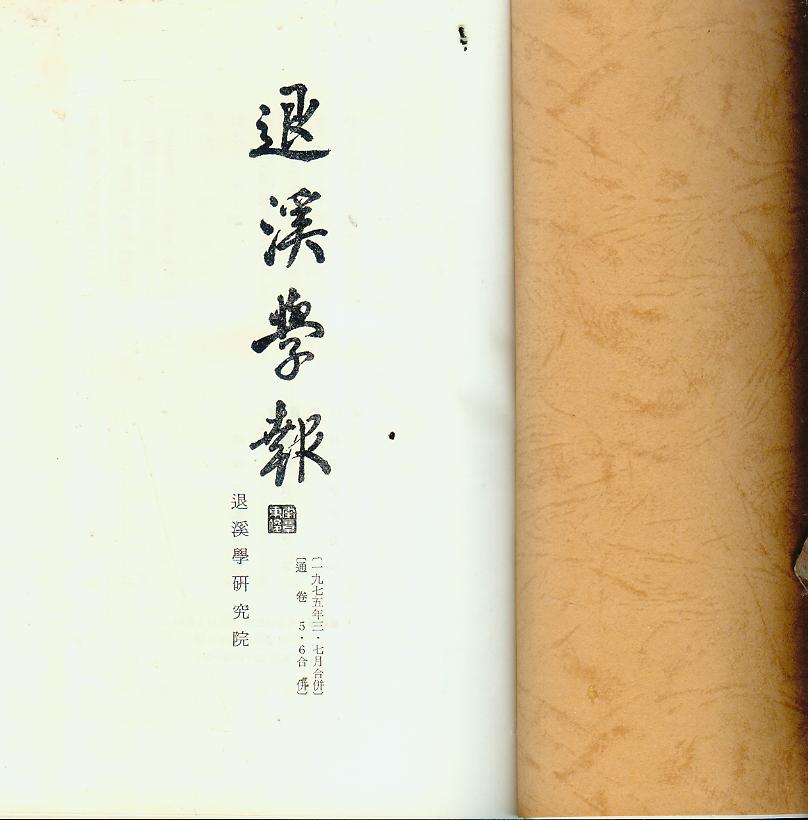 退溪學報
〔一九七五年三·七月合併〕
〔通卷 5·6合 併〕
退溪學硏究院